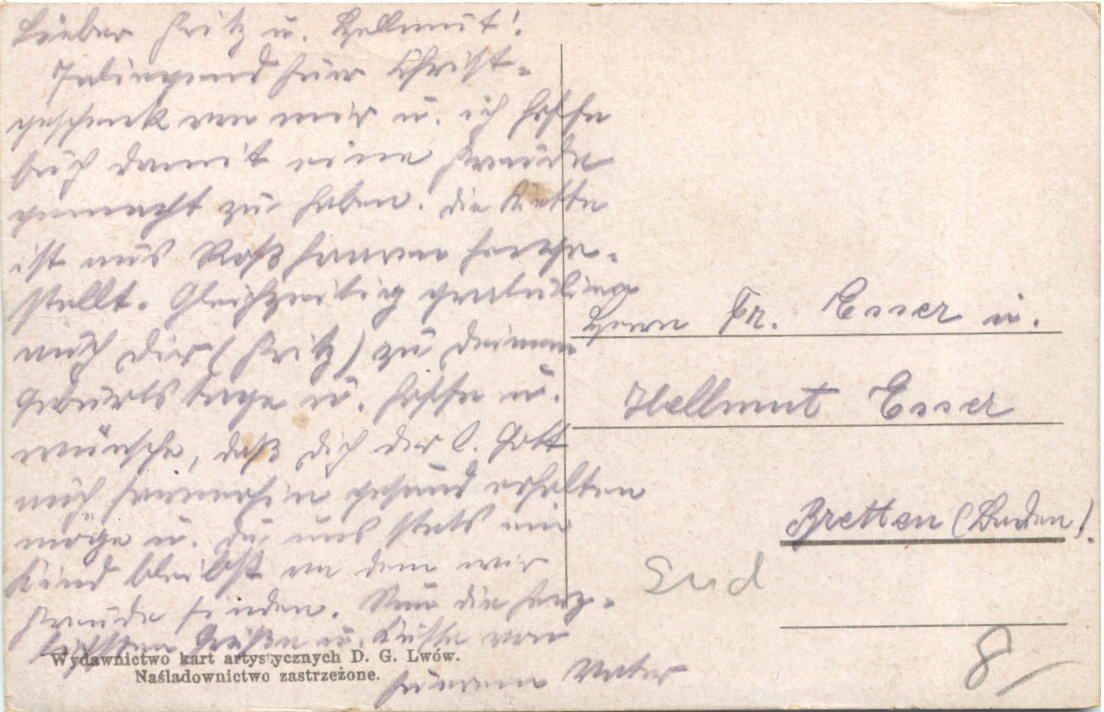 Lieber Fritz u. Hellmut!
Inliegend Euer Christ-
geschenk von mir u. ich hoffe
Euch damit eine Freude
gemacht zu haben. Die Kette
ist aus Roßhaaren herge-
stellt. Gleichzeitig gratuliere
auch Dir (Fritz) zu Deinem
Geburtstage u. hoffe u.
wünsche, daß Dich der l. Gott
auch fernerhin gesund erhalten
möge u. Du uns stets ein
Kind bleibst an dem wir
Freude finden. Nun die herz-
lichsten Grüße u. Küsse von
Eurem Vater
Wydawnictwo kart artystycznych D. G. Lwów.
Naśladownictwo zastrzeżone.
Herrn Fr. Esser u.
Hellmut Esser
Bretten (Baden).
8